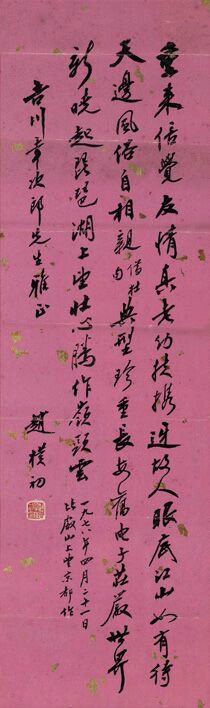 重来倍覺友情真老幼扶携迓故人眼底江山如有待
天邊風俗自相親借杜句典型珍重長安舊电子莊嚴世界
新晓起琵琶湖上望壮心騰作嶺頭雲
吉川幸次郎先生雅正
趙樸初
一九七八年四月二十一日
比叡山上望京都作